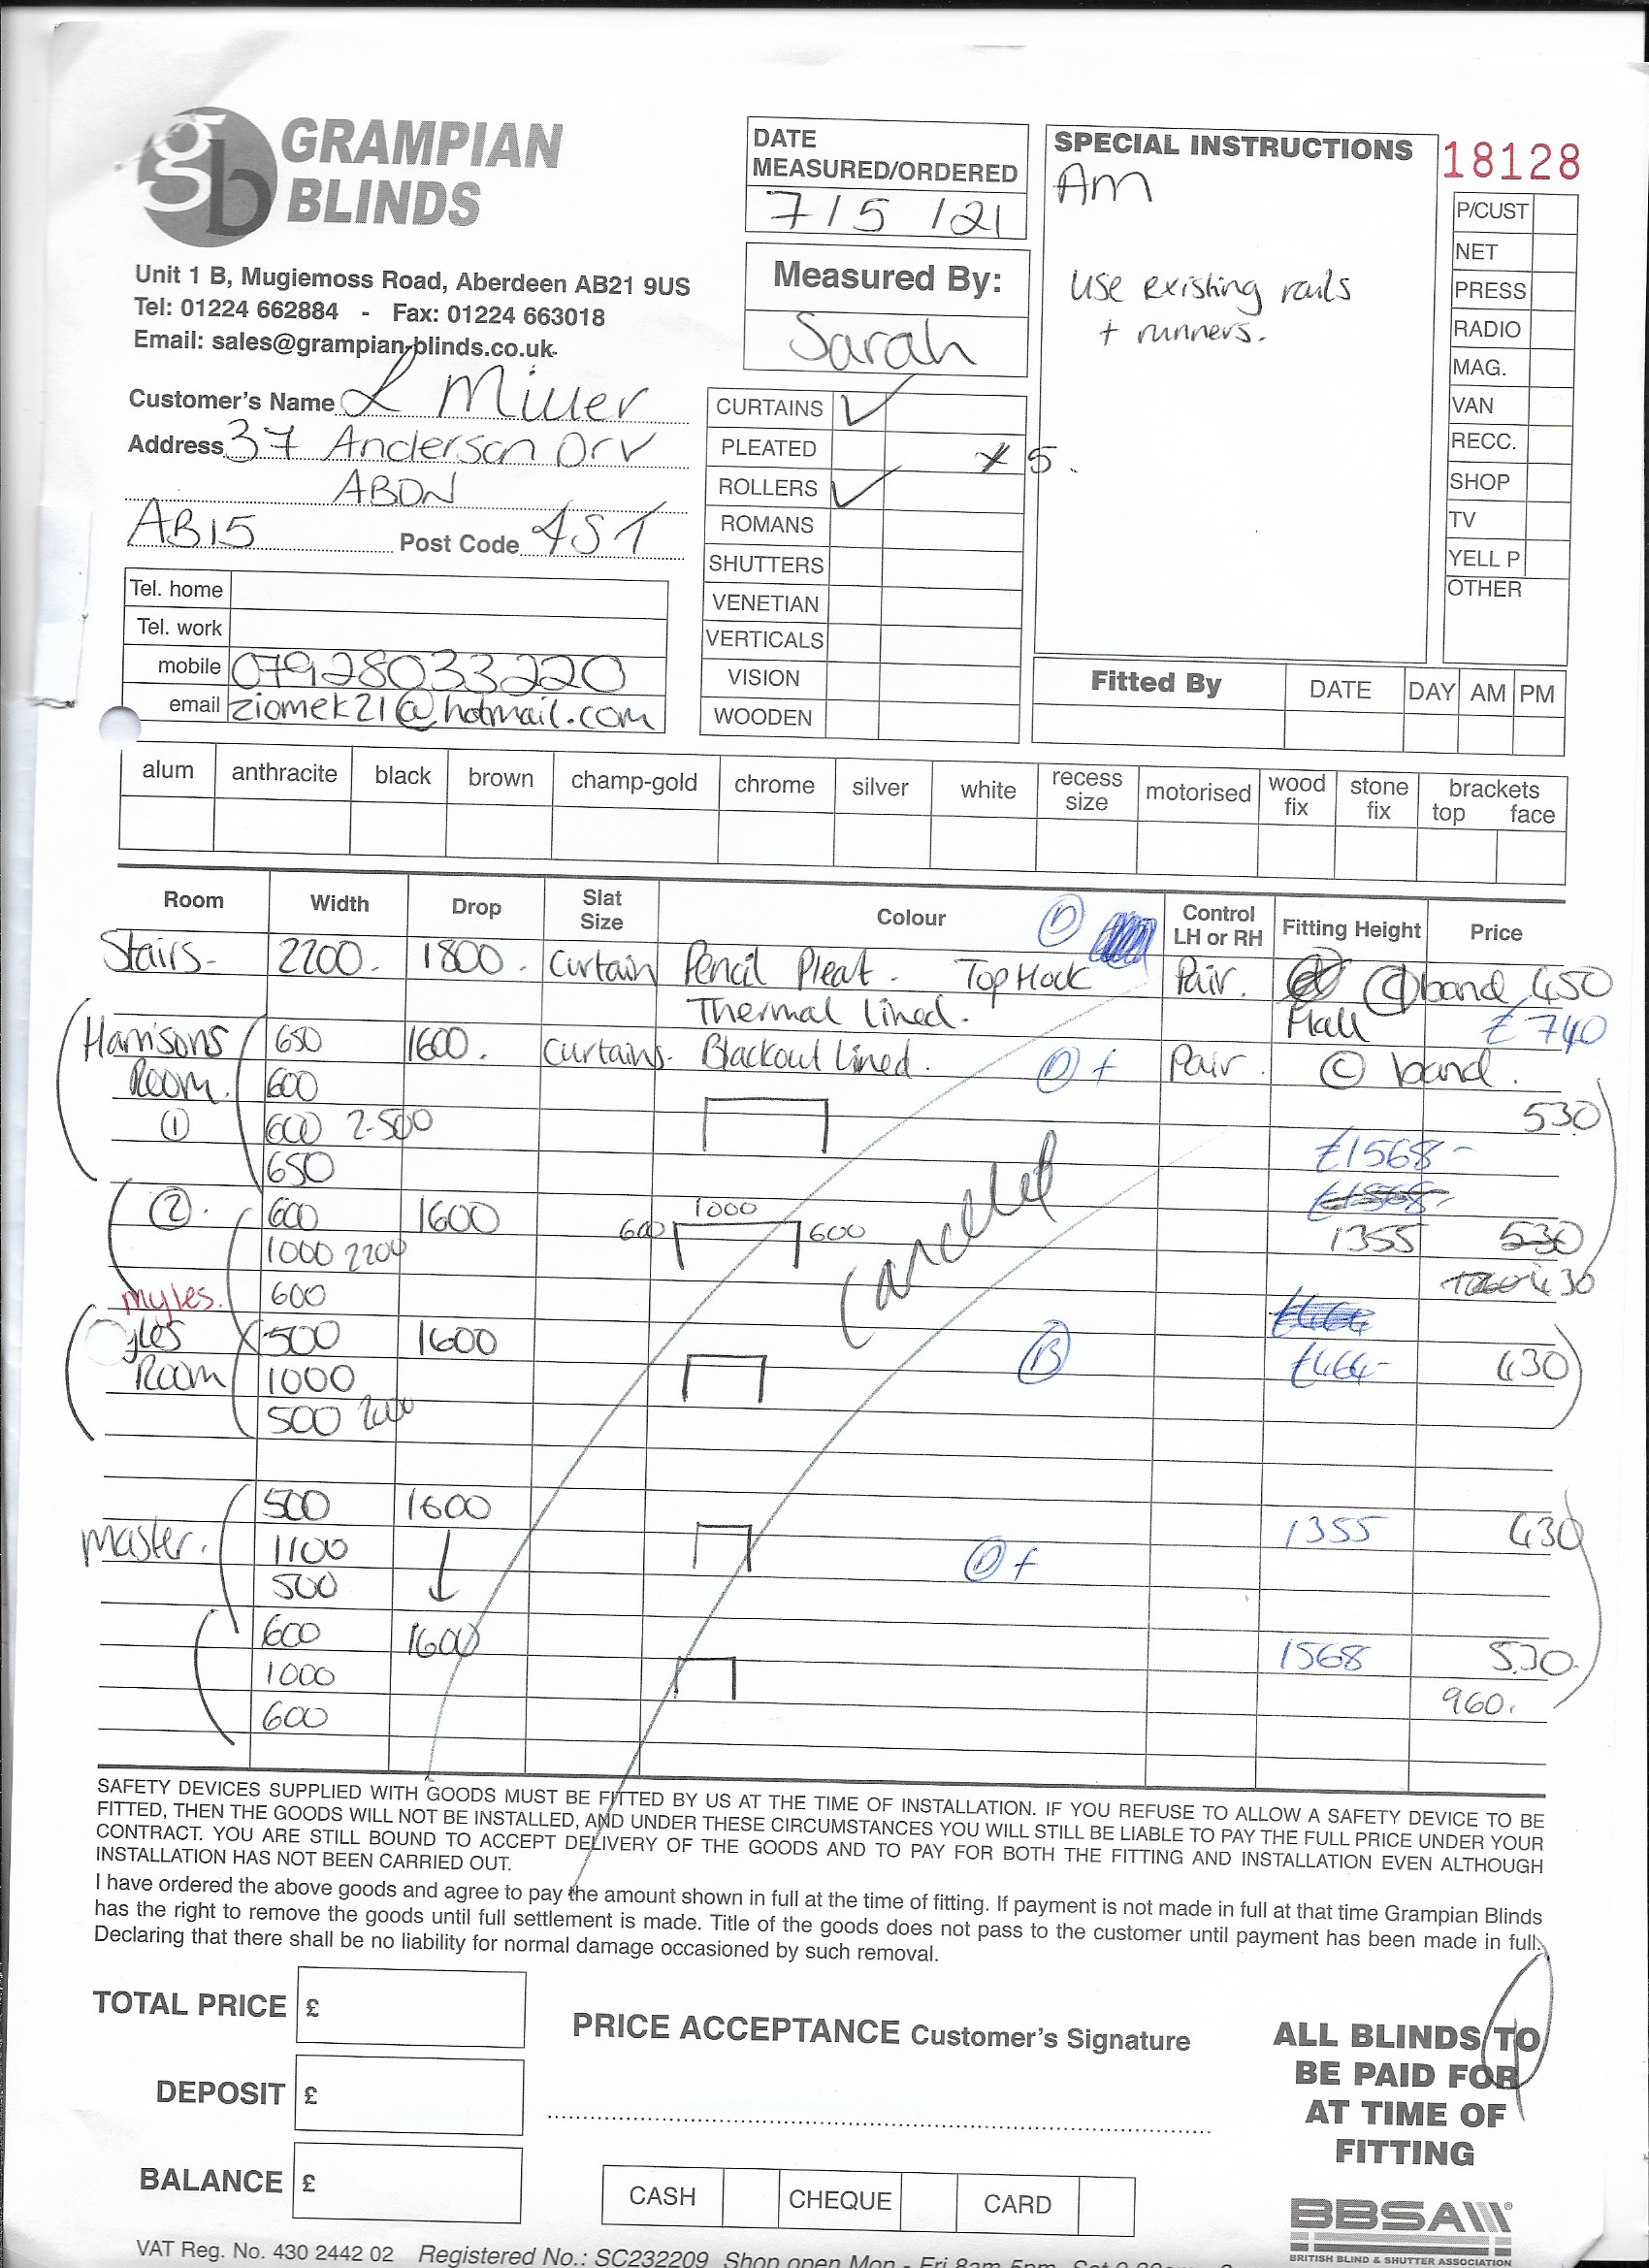 gb GRAMPIAN
BLINDS
Unit 1 B, Mugiemoss Road, Aberdeen AB21 9US
Tel: 01224 662884 - Fax: 01224 663018
Email: sales@grampian-blinds.co.uk
DATE
MEASURED/ORDERED
7/5/21
Measured By:
Sarah
SPECIAL INSTRUCTIONS
Am
use existing rails
+ runners.
18128
P/CUST
NET
PRESS
RADIO
MAG.
VAN
RECC.
SHOP
TV
YELL P
OTHER
Customer's Name L Miller
Address 37 Anderson Drv
ABDN
AB15 Post Code 4ST
Tel. home
Tel. work
mobile 07928033220
email ziomek21@hotmail.com
CURTAINS ✓
PLEATED x 5.
ROLLERS ✓
ROMANS
SHUTTERS
VENETIAN
VERTICALS
VISION
WOODEN
Fitted By DATE DAY AM PM
alum anthracite black brown champ-gold chrome silver white recess size motorised wood fix stone fix brackets top face
Room Width Drop Slat Size Colour D Control LH or RH Fitting Height Price
Stairs - 2200. 1800. Curtain Pencil Pleat. Top Hook Pair. band 450
Thermal Lined. Hall £740
Harrisons 650 1600. Curtains. Blackout Lined. D + Pair. C band.
Room. 600
530
① 600 2500
£1568-
650
②. 600 1600 600 1000 600 1355 530
1000 2200
430
Myles. 600
cancelled
yles 500 1600 B £464- 430
Room 1000
500 2000
500 1600 1355 430
Master. 1100 D +
500
600 1600 1568 530.
1000 960.
600
SAFETY DEVICES SUPPLIED WITH GOODS MUST BE FITTED BY US AT THE TIME OF INSTALLATION. IF YOU REFUSE TO ALLOW A SAFETY DEVICE TO BE
FITTED, THEN THE GOODS WILL NOT BE INSTALLED, AND UNDER THESE CIRCUMSTANCES YOU WILL STILL BE LIABLE TO PAY THE FULL PRICE UNDER YOUR
CONTRACT. YOU ARE STILL BOUND TO ACCEPT DELIVERY OF THE GOODS AND TO PAY FOR BOTH THE FITTING AND INSTALLATION EVEN ALTHOUGH
INSTALLATION HAS NOT BEEN CARRIED OUT.
I have ordered the above goods and agree to pay the amount shown in full at the time of fitting. If payment is not made in full at that time Grampian Blinds
has the right to remove the goods until full settlement is made. Title of the goods does not pass to the customer until payment has been made in full.
Declaring that there shall be no liability for normal damage occasioned by such removal.
TOTAL PRICE £
DEPOSIT £
BALANCE £
PRICE ACCEPTANCE Customer's Signature
CASH CHEQUE CARD
ALL BLINDS TO
BE PAID FOR
AT TIME OF
FITTING
BBSA
BRITISH BLIND & SHUTTER ASSOCIATION
VAT Reg. No. 430 2442 02 Registered No.: SC232209 Shop open Mon - Fri 8am 5pm